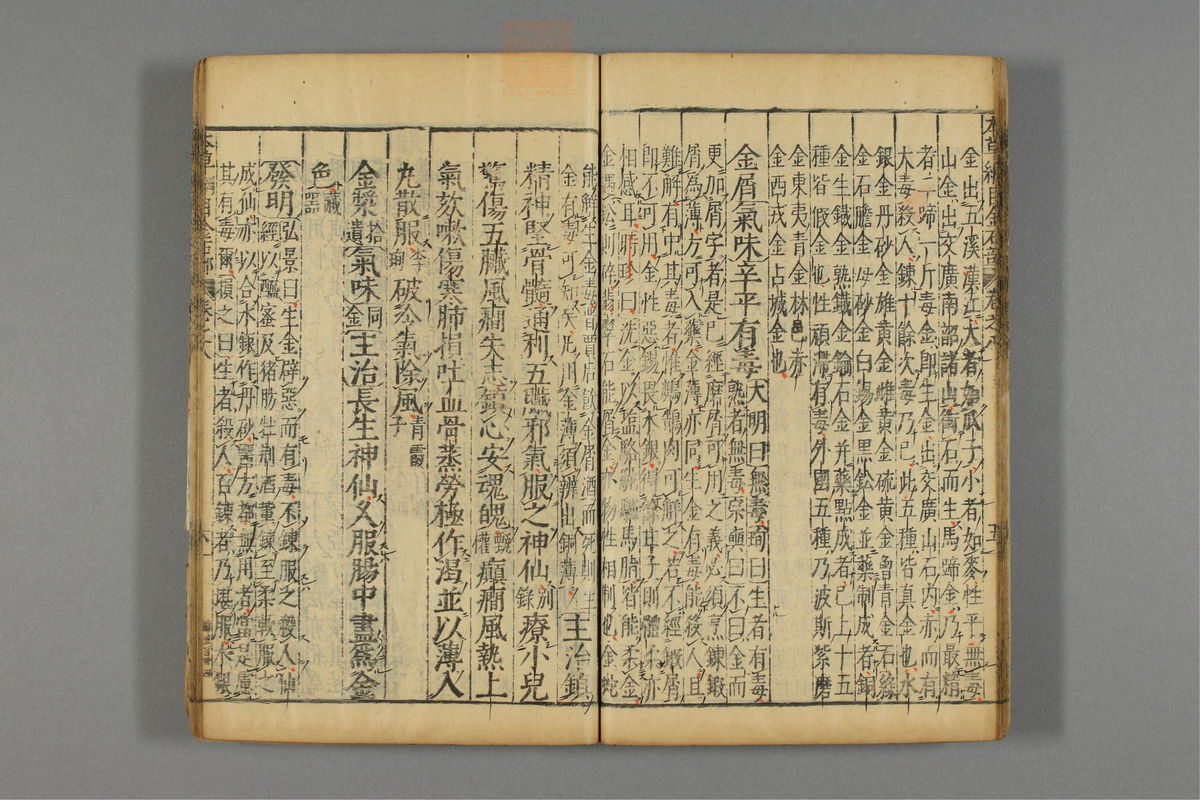 金出五溪漢江大者如瓜子小者如麥性平無毒
山金出交廣南韶諸山銜石而生馬蹄金乃最精
者二蹄一斤毒金即生金出交廣山石內赤而有
大毒殺人鍊十餘次毒乃已此五種皆真金也水
銀金丹砂金雄黃金雌黃金硫黃金曾青金石綠
金石膽金母砂金白錫金黑鉛金並藥制成者銅
金生鐵金熟鐵金鍮石金並藥點成者已上十五
種皆假金也性頑滯有毒外國五種乃波斯紫磨
金東夷青金林邑赤
金西戎金占城金也
金屑氣味辛平有毒大明曰無毒珣曰生者有毒
熟者無毒宗奭曰不曰金而
更加屑字者是已經磨屑可用之義必須烹鍊鍛
屑為薄方可入藥金薄亦同生金有毒能殺人且
難解有中其毒者惟鷓鴣肉可解之若不經鍛屑
即不可用金性惡錫畏水銀得餘甘子則體柔亦
相感耳時珍曰洗金以鹽駱駝驢馬脂皆能柔金
金遇鉛則碎翡翠石能屑金亦物性相制也金蛇
能解生金毒晉賈后飲金屑酒而死則生
金有毒可知矣凡用金薄須辨出銅薄主治鎮
精神堅骨髓通利五臟邪氣服之神仙別錄療小兒
驚傷五臟風癇失志鎮心安魂魄甄權癲癇風熱上
氣欬嗽傷寒肺損吐血骨蒸勞極作渴並以薄入
丸散服李珣破冷氣除風青霞子
金漿拾遺氣味同金主治長生神仙久服腸中盡為金
色藏器
發明弘景曰生金辟惡而有毒不鍊服之殺人仙
經以醯蜜及猪肪牡荊酒輩鍊至柔軟服之
成仙亦以合水銀作丹砂醫方都無用者當是慮
其有毒爾損之曰生者殺人百鍊者乃堪服水銀